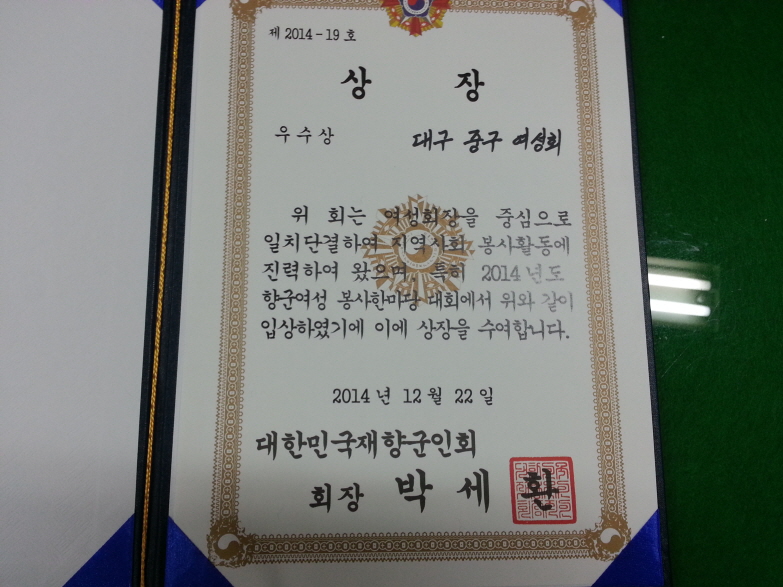 제 2014-19 호
상 장
우수상 대구 중구 여성회
위 회는 여성회장을 중심으로
일치단결하여 지역사회 봉사활동에
진력하여 왔으며 특히 2014년도
향군여성 봉사한마당 대회에서 위와 같이
입상하였기에 이에 상장을 수여합니다.
2014년 12월 22일
대한민국재향군인회
회장 박세환